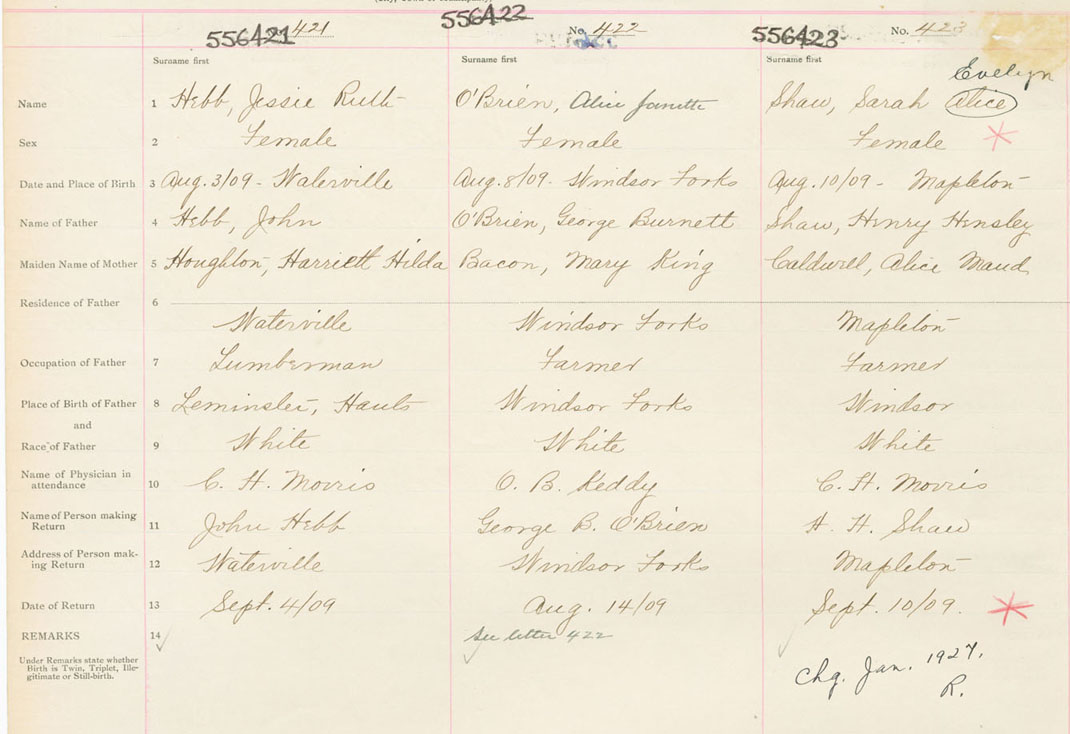 556421 421 556422 No. 422 556423 No. 423
Surname first Surname first Surname first
Evelyn
Name 1 Hebb, Jessie Ruth O'Brien, Alice Janette Shaw, Sarah Alice
Sex 2 Female Female Female
Date and Place of Birth 3 Aug. 3/09 - Waterville Aug. 8/09 - Windsor Forks Aug. 10/09 - Mapleton
Name of Father 4 Hebb, John O'Brien, George Burnett Shaw, Henry Hensley
Maiden Name of Mother 5 Houghton, Harriett Hilda Bacon, Mary King Caldwell, Alice Maud
Residence of Father 6
Waterville Windsor Forks Mapleton
Occupation of Father 7 Lumberman Farmer Farmer
Place of Birth of Father 8 Leminster, Hants Windsor Forks Windsor
and
Race of Father 9 White White White
Name of Physician in
attendance 10 C. H. Morris O. B. Keddy C. H. Morris
Name of Person making
Return 11 John Hebb George B. O'Brien H. H. Shaw
Address of Person mak-
ing Return 12 Waterville Windsor Forks Mapleton
Date of Return 13 Sept. 4/09 Aug. 14/09 Sept. 10/09.
REMARKS 14 See letter 422
Under Remarks state whether
Birth is Twin, Triplet, Ille-
gitimate or Still-birth.
Chg. Jan. 1927.
R.